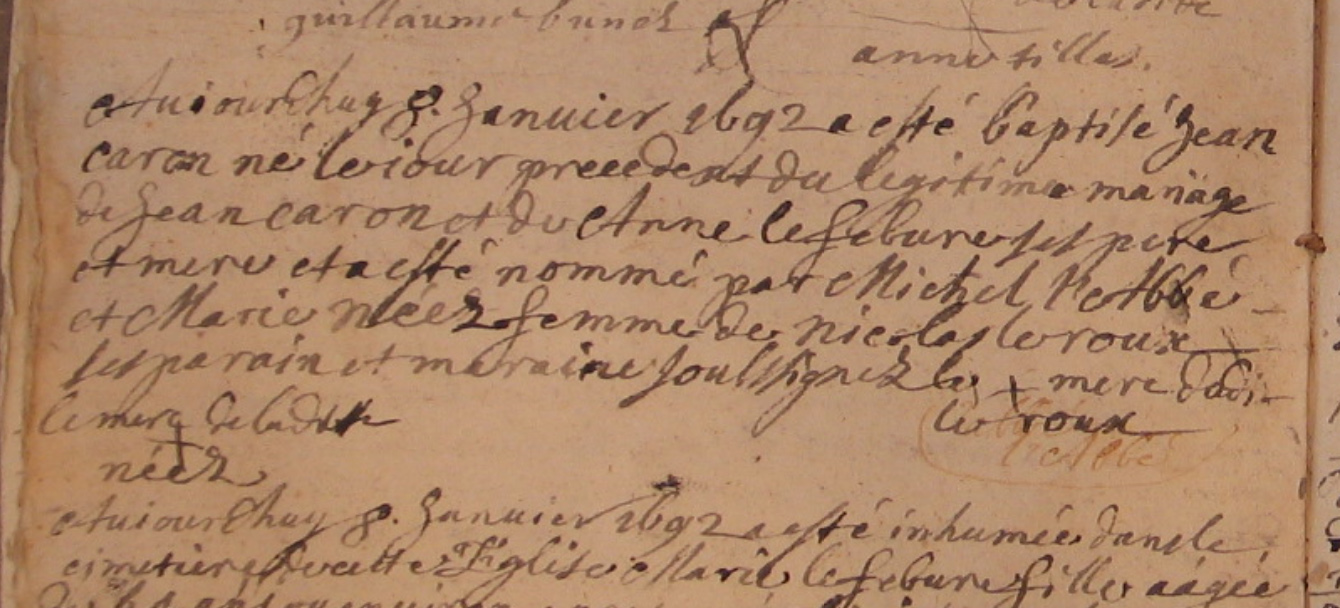 guillaume
anne fille
Auiourdhuy 8. Januier 1692 a esté baptisé Jean
caron né le iour precedent du legitime mariage
de Jean caron et de Anne lefebure ses pere
et mere et a esté nommé par Michel l'Abbé
et Marie Néez femme de nicolas leroux
ses parain et maraine soulssignez le x merc dudit
le merc de ladite le roux
néez l'Abbé
Auiourdhuy 8. Januier 1692 a esté inhumée dans le
cimetiere de cette Eglise Marie lefebure fille aagée
ans ou enuiron